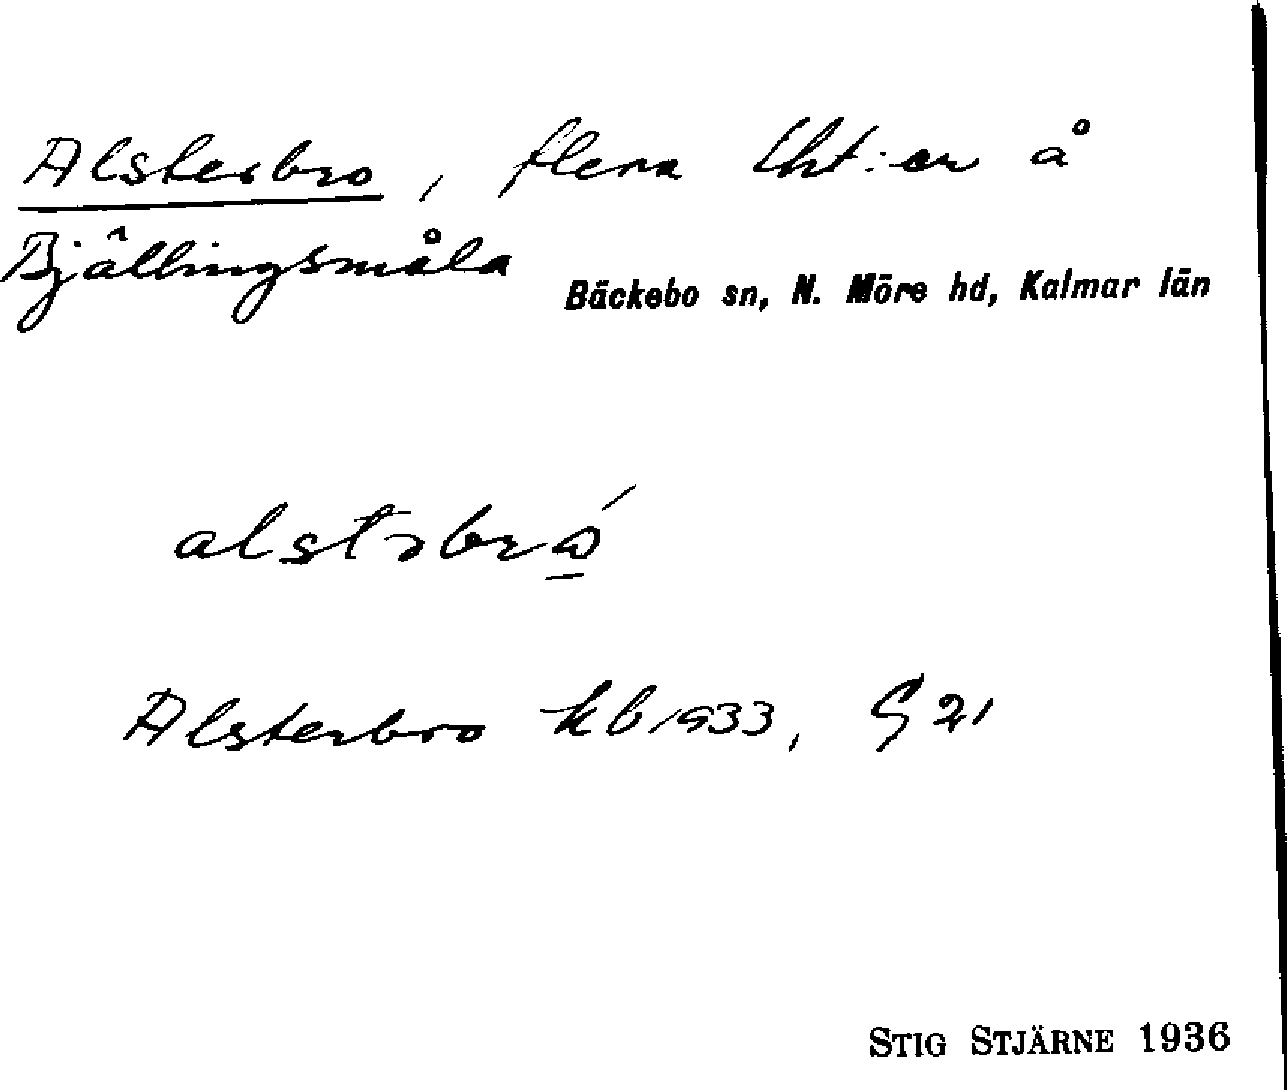 Alsterbro, flera lht:er å
Bjällingsmåla Bäckebo sn, N. Möre hd, Kalmar län
alstəbrώ̲
Alsterbro kb 1933, G 21
STIG STJÄRNE 1936